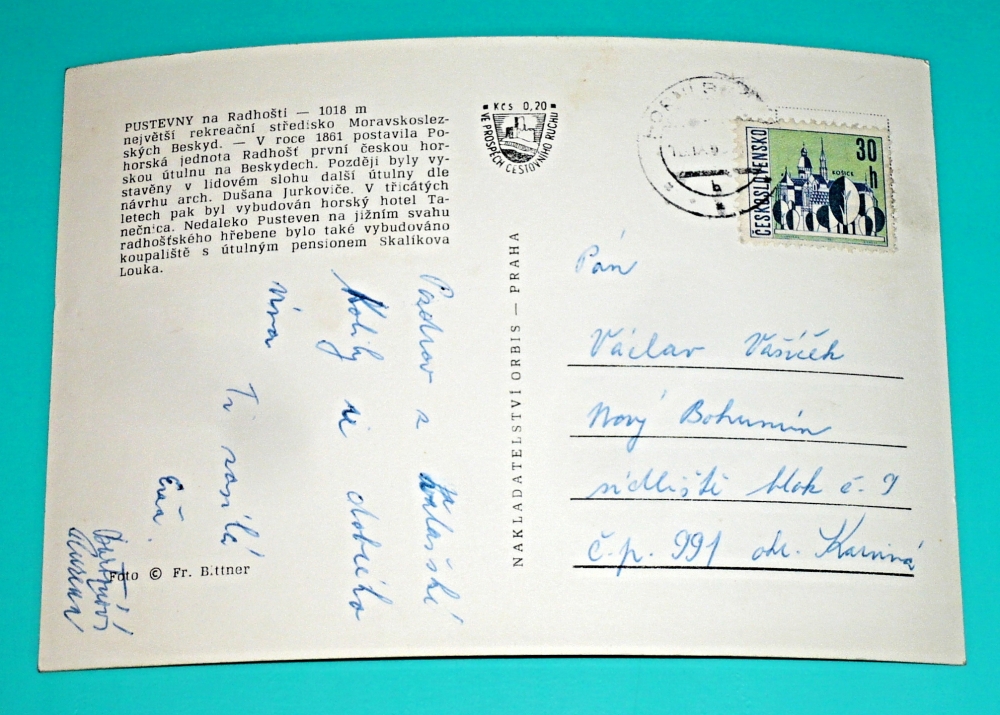 PUSTEVNY na Radhošti — 1018 m
největší rekreační středisko Moravskoslez-
ských Beskyd. — V roce 1861 postavila Po-
horská jednota Radhošť první českou hor-
skou útulnu na Beskydech. Později byly vy-
stavěny v lidovém slohu další útulny dle
návrhu arch. Dušana Jurkoviče. V třicátých
letech pak byl vybudován horský hotel Ta-
nečnica. Nedaleko Pusteven na jižním svahu
radhošťského hřebene bylo také vybudováno
koupaliště s útulným pensionem Skalíkova
Louka.
Pozdrav z Valašské
a dobrého
vína
Ti zasílá
Foto © Fr. Bittner
Kčs 0,20
VE PROSPĚCH CESTOVNÍHO RUCHU
NAKLADATELSTVÍ ORBIS — PRAHA
ČESKOSLOVENSKO
30 h
KOŠICE
Pán
Václav Vašíček
Nový Bohumín
sídliště blok č. 9
č.p. 991 okr. Karviná